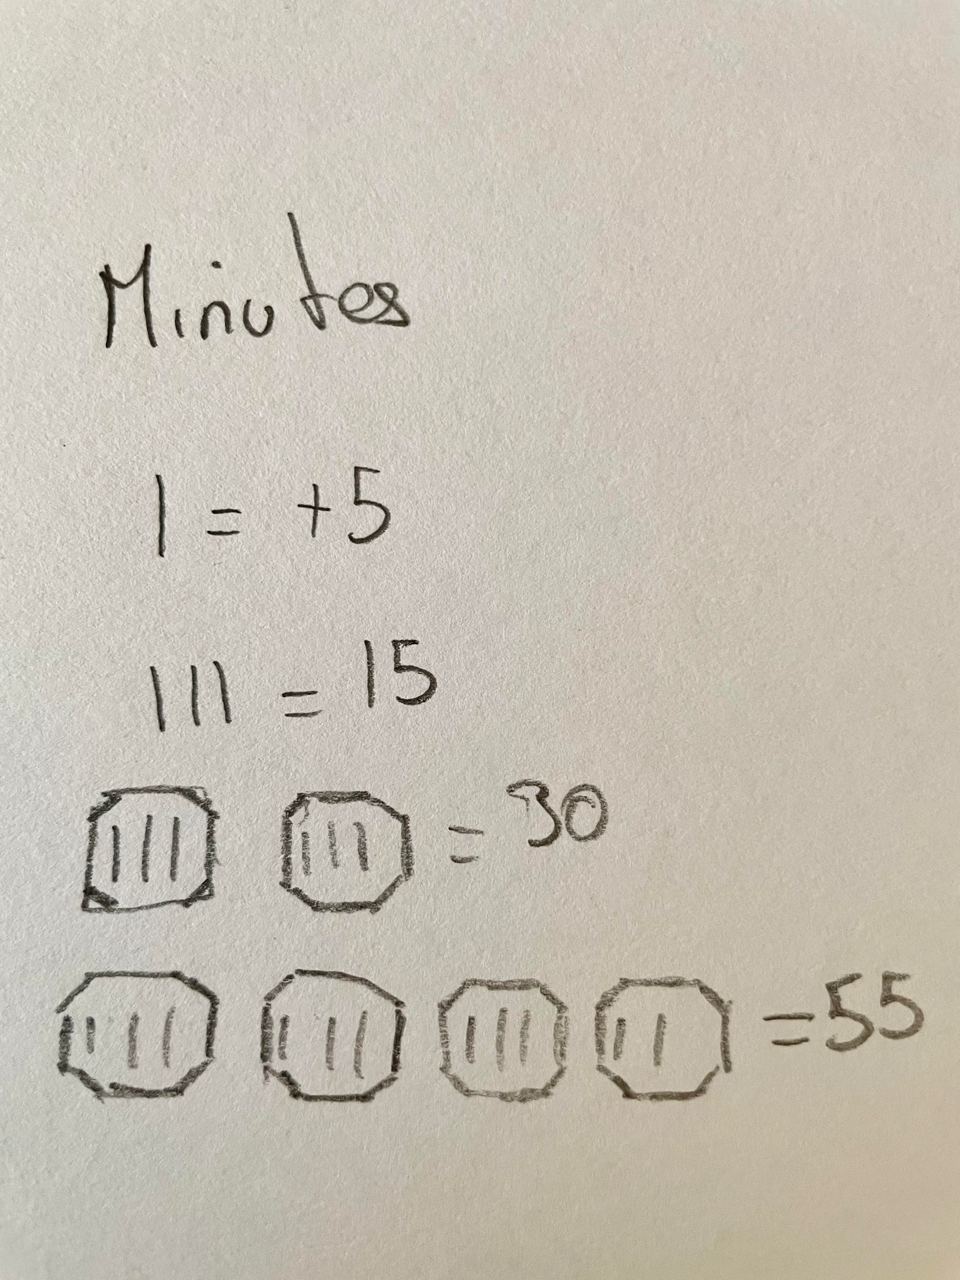 Minutes
| = +5
||| = 15
||| ||| = 30
||| ||| ||| || = 55